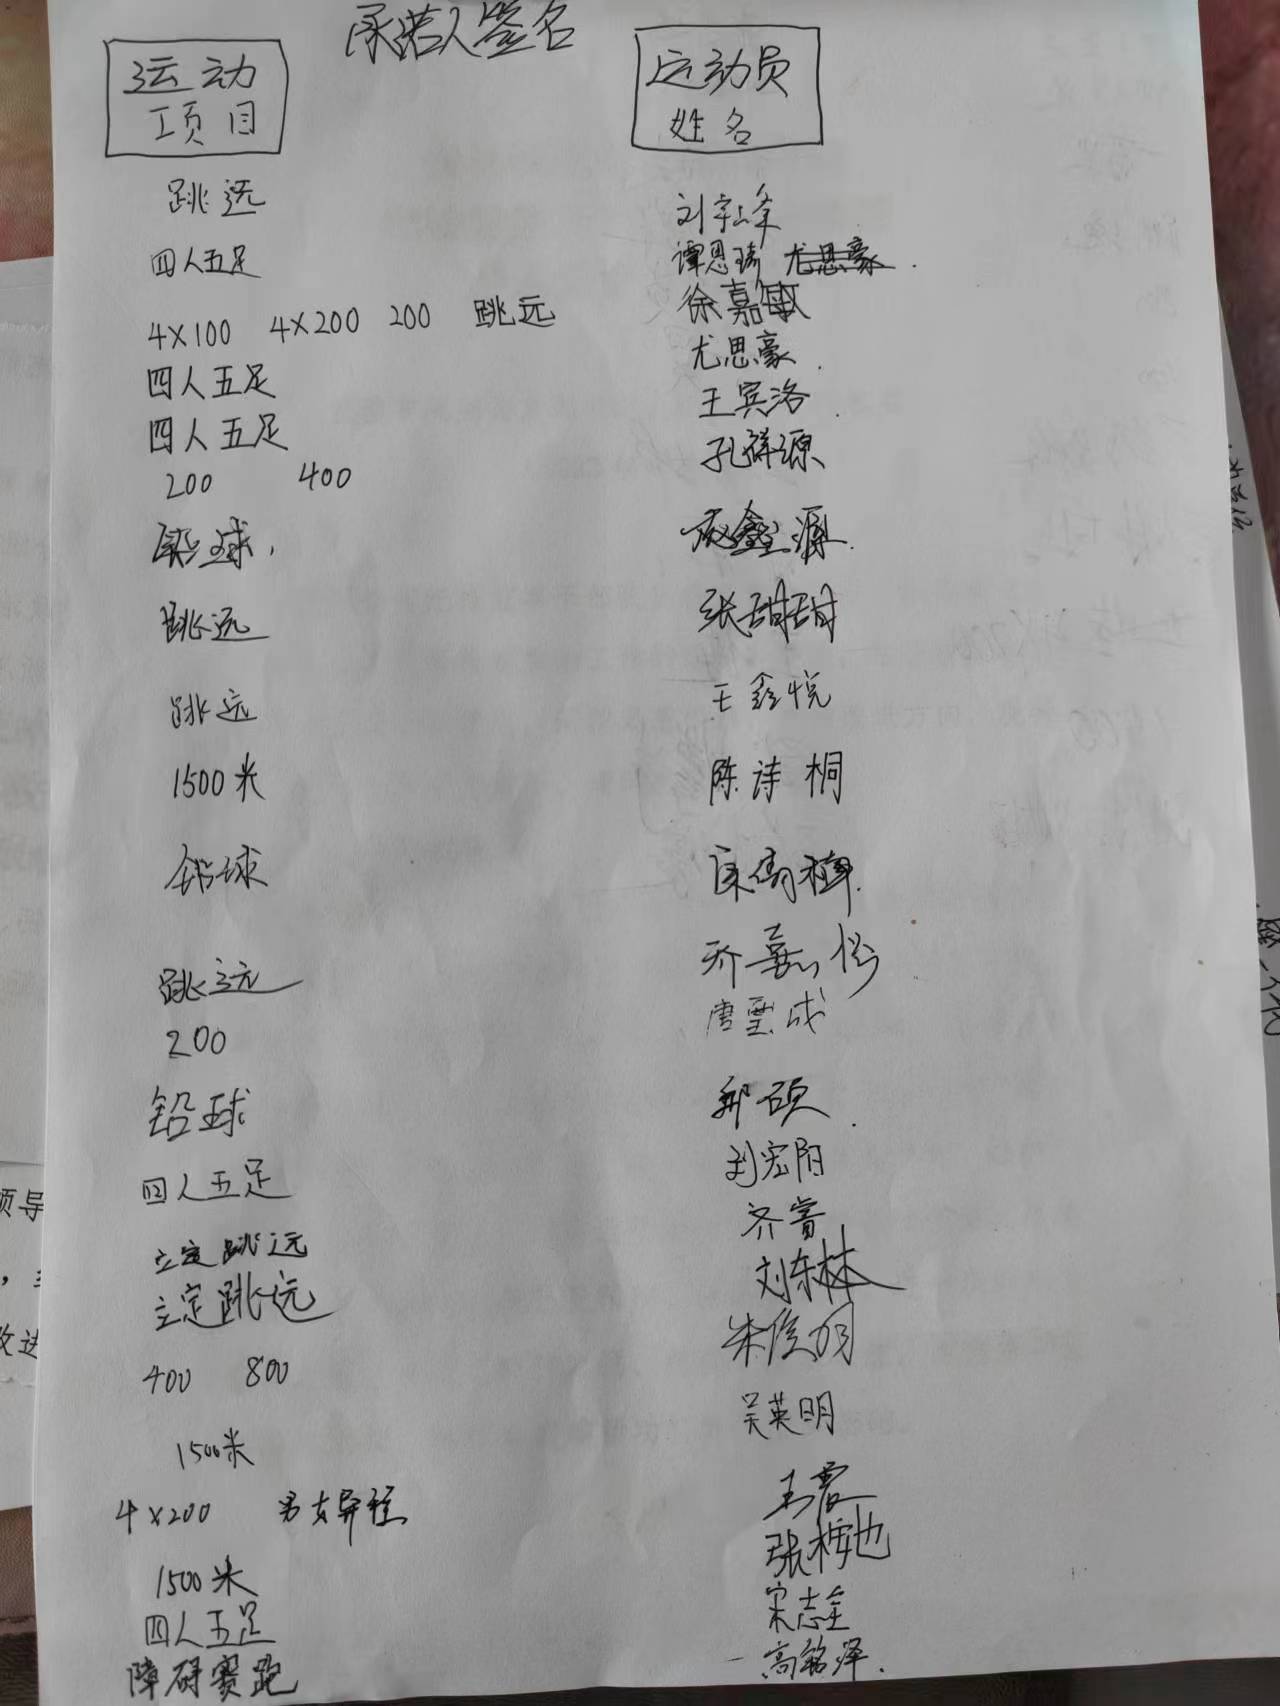 承诺人签名
运动项目 运动员姓名
跳远 刘宇峰
四人五足 谭恩琦 尤思豪
4×100 4×200 200 跳远 徐嘉敏
四人五足 尤思豪
四人五足 王宾洛
200 400 孔祥源
铅球 鑫源
跳远 张甜甜
跳远 王鑫悦
1500米 陈诗桐
铅球
跳远 乔嘉
200 唐 成
铅球 郭硕
四人五足 刘宏阳
立定跳远 齐
立定跳远 刘东林
400 800 朱俊明
1500米 吴英明
4×200 男女异程 王
1500米 张桉也
四人五足 宋志全
障碍赛跑 高铭泽